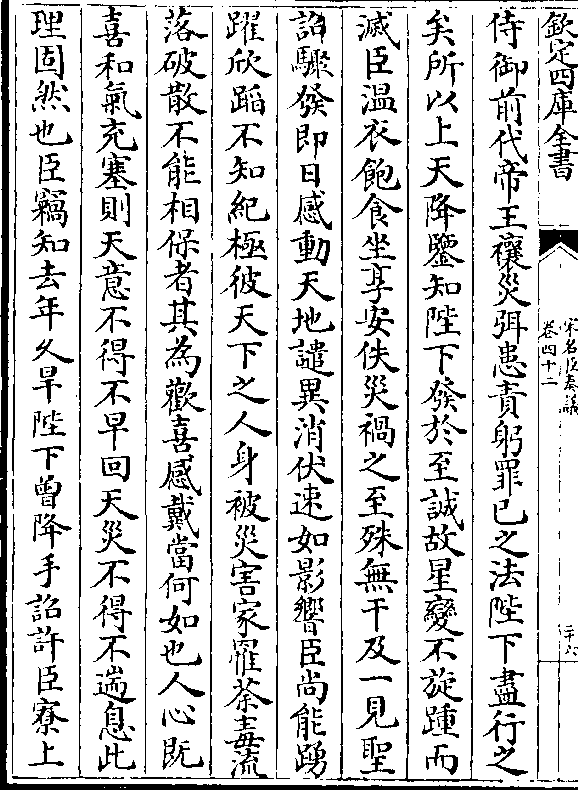 欽定四庫全書
宋名臣奏議
卷四十二
二十六
侍御前代帝王禳災弭患責躬罪已之法陛下盡行之
矣所以上天降鑒知陛下發於至誠故星變不旋踵而
滅臣溫衣飽食坐享安佚災禍之至殊無干及一見聖
詔驟發即日感動天地譴異消伏速如影響臣尚能踴
躍欣蹈不知紀極彼天下之人身被災害家罹荼毒流
落破散不能相保者其為歡喜感戴當何如也人心既
喜和氣充塞則天意不得不早回天災不得不遄息此
理固然也臣竊知去年久旱陛下曾降手詔許臣寮上